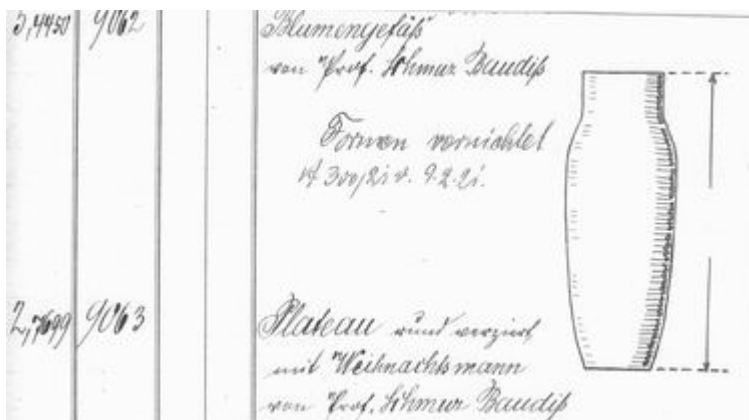 9062 Blumengefäß
von Prof. Schmuz Baudiß
Formen vernichtet
9.2.21.
9063 Plateau rund verziert
mit Weihnachtsmann
von Prof. Schmuz Baudiß